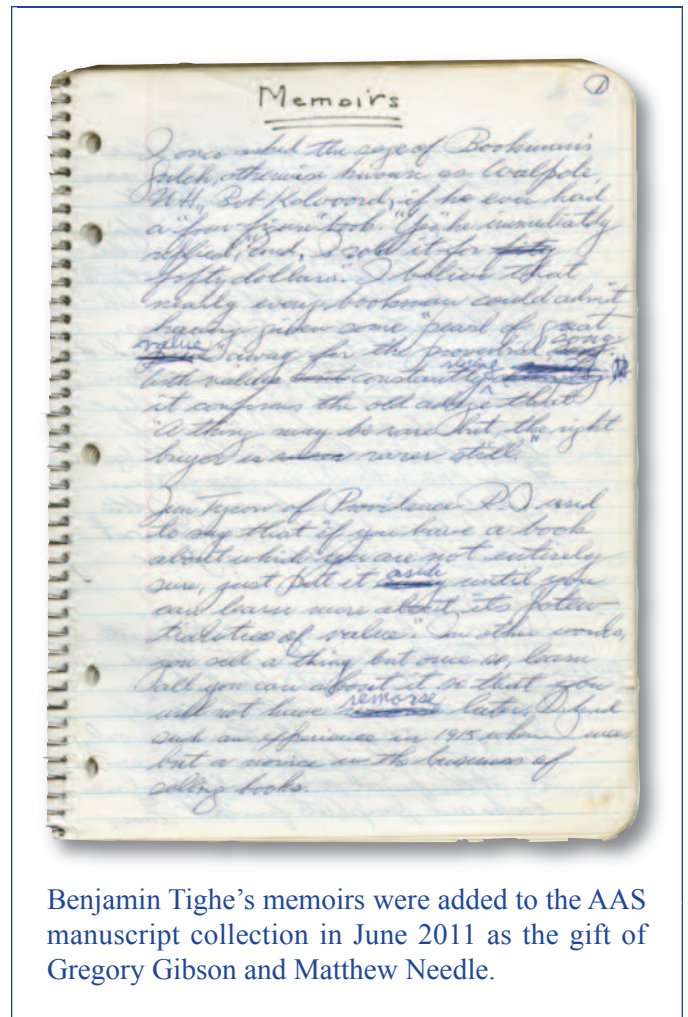 1
Memoirs
I once asked the sage of Bookman's
Gulch, otherwise known as Walpole,
NH, Bob Kolvoord, if he ever had
a "four figure" book. "Yes", he immediately
replied, "and, I sold it for
fifty dollars". I believe that
nearly every bookman could admit
having given some "pearl of great
value" away for the proverbial song
With values constantly rising
it confirms the old adage that
"A thing may be rare but the right
buyer is rarer still."
Jim Tyson of Providence R.I. used
to say that "if you have a book
about which you are not entirely
sure, just put it aside until you
can learn more about its poten-
tialities of value". In other words,
you sell a thing but once so, learn
all you can about it so that you
will not have remorse later. I had
such an experience in 1915 when I was
but a novice in the business of
selling books.
Benjamin Tighe's memoirs were added to the AAS
manuscript collection in June 2011 as the gift of
Gregory Gibson and Matthew Needle.